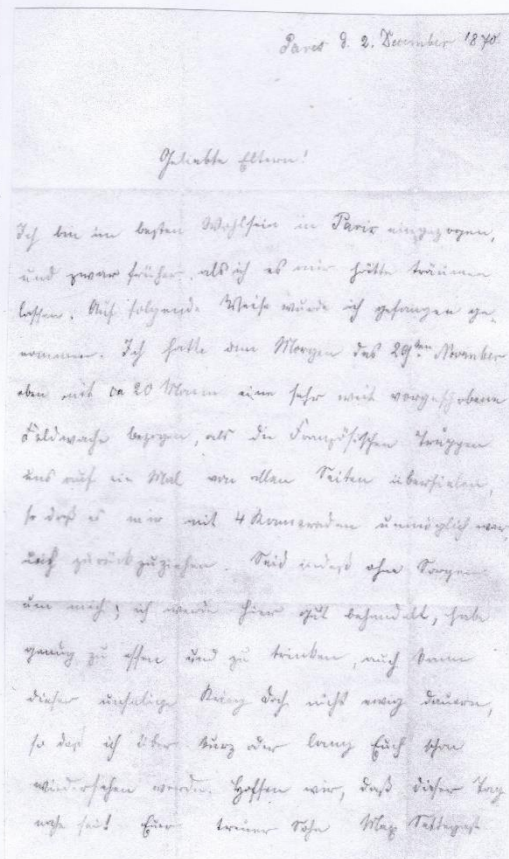 Paris d. 2. December 1870.
Geliebte Eltern!
Ich bin im besten Wohlsein in Paris eingezogen,
und zwar früher, als ich es mir hätte träumen
lassen. Auf folgende Weise wurde ich gefangen ge-
nommen. Ich hatte am Morgen des 29ten November
eben mit ca 20 Mann eine sehr weit vorgeschobene
Feldwache bezogen, als die Französischen Truppen
uns auf ein Mal von allen Seiten überfielen,
so daß es mir mit 4 Kameraden unmöglich war,
mich zurückzuziehen. Seid indeß ohne Sorgen
um mich; ich werde hier gut behandelt, habe
genug zu essen und zu trinken, auch kann
dieser unselige Krieg doch nicht ewig dauern,
so daß ich über kurz oder lang Euch schon
wiedersehen werde. Hoffen wir, daß dieser Tag
nahe sei! Euer treuer Sohn Max